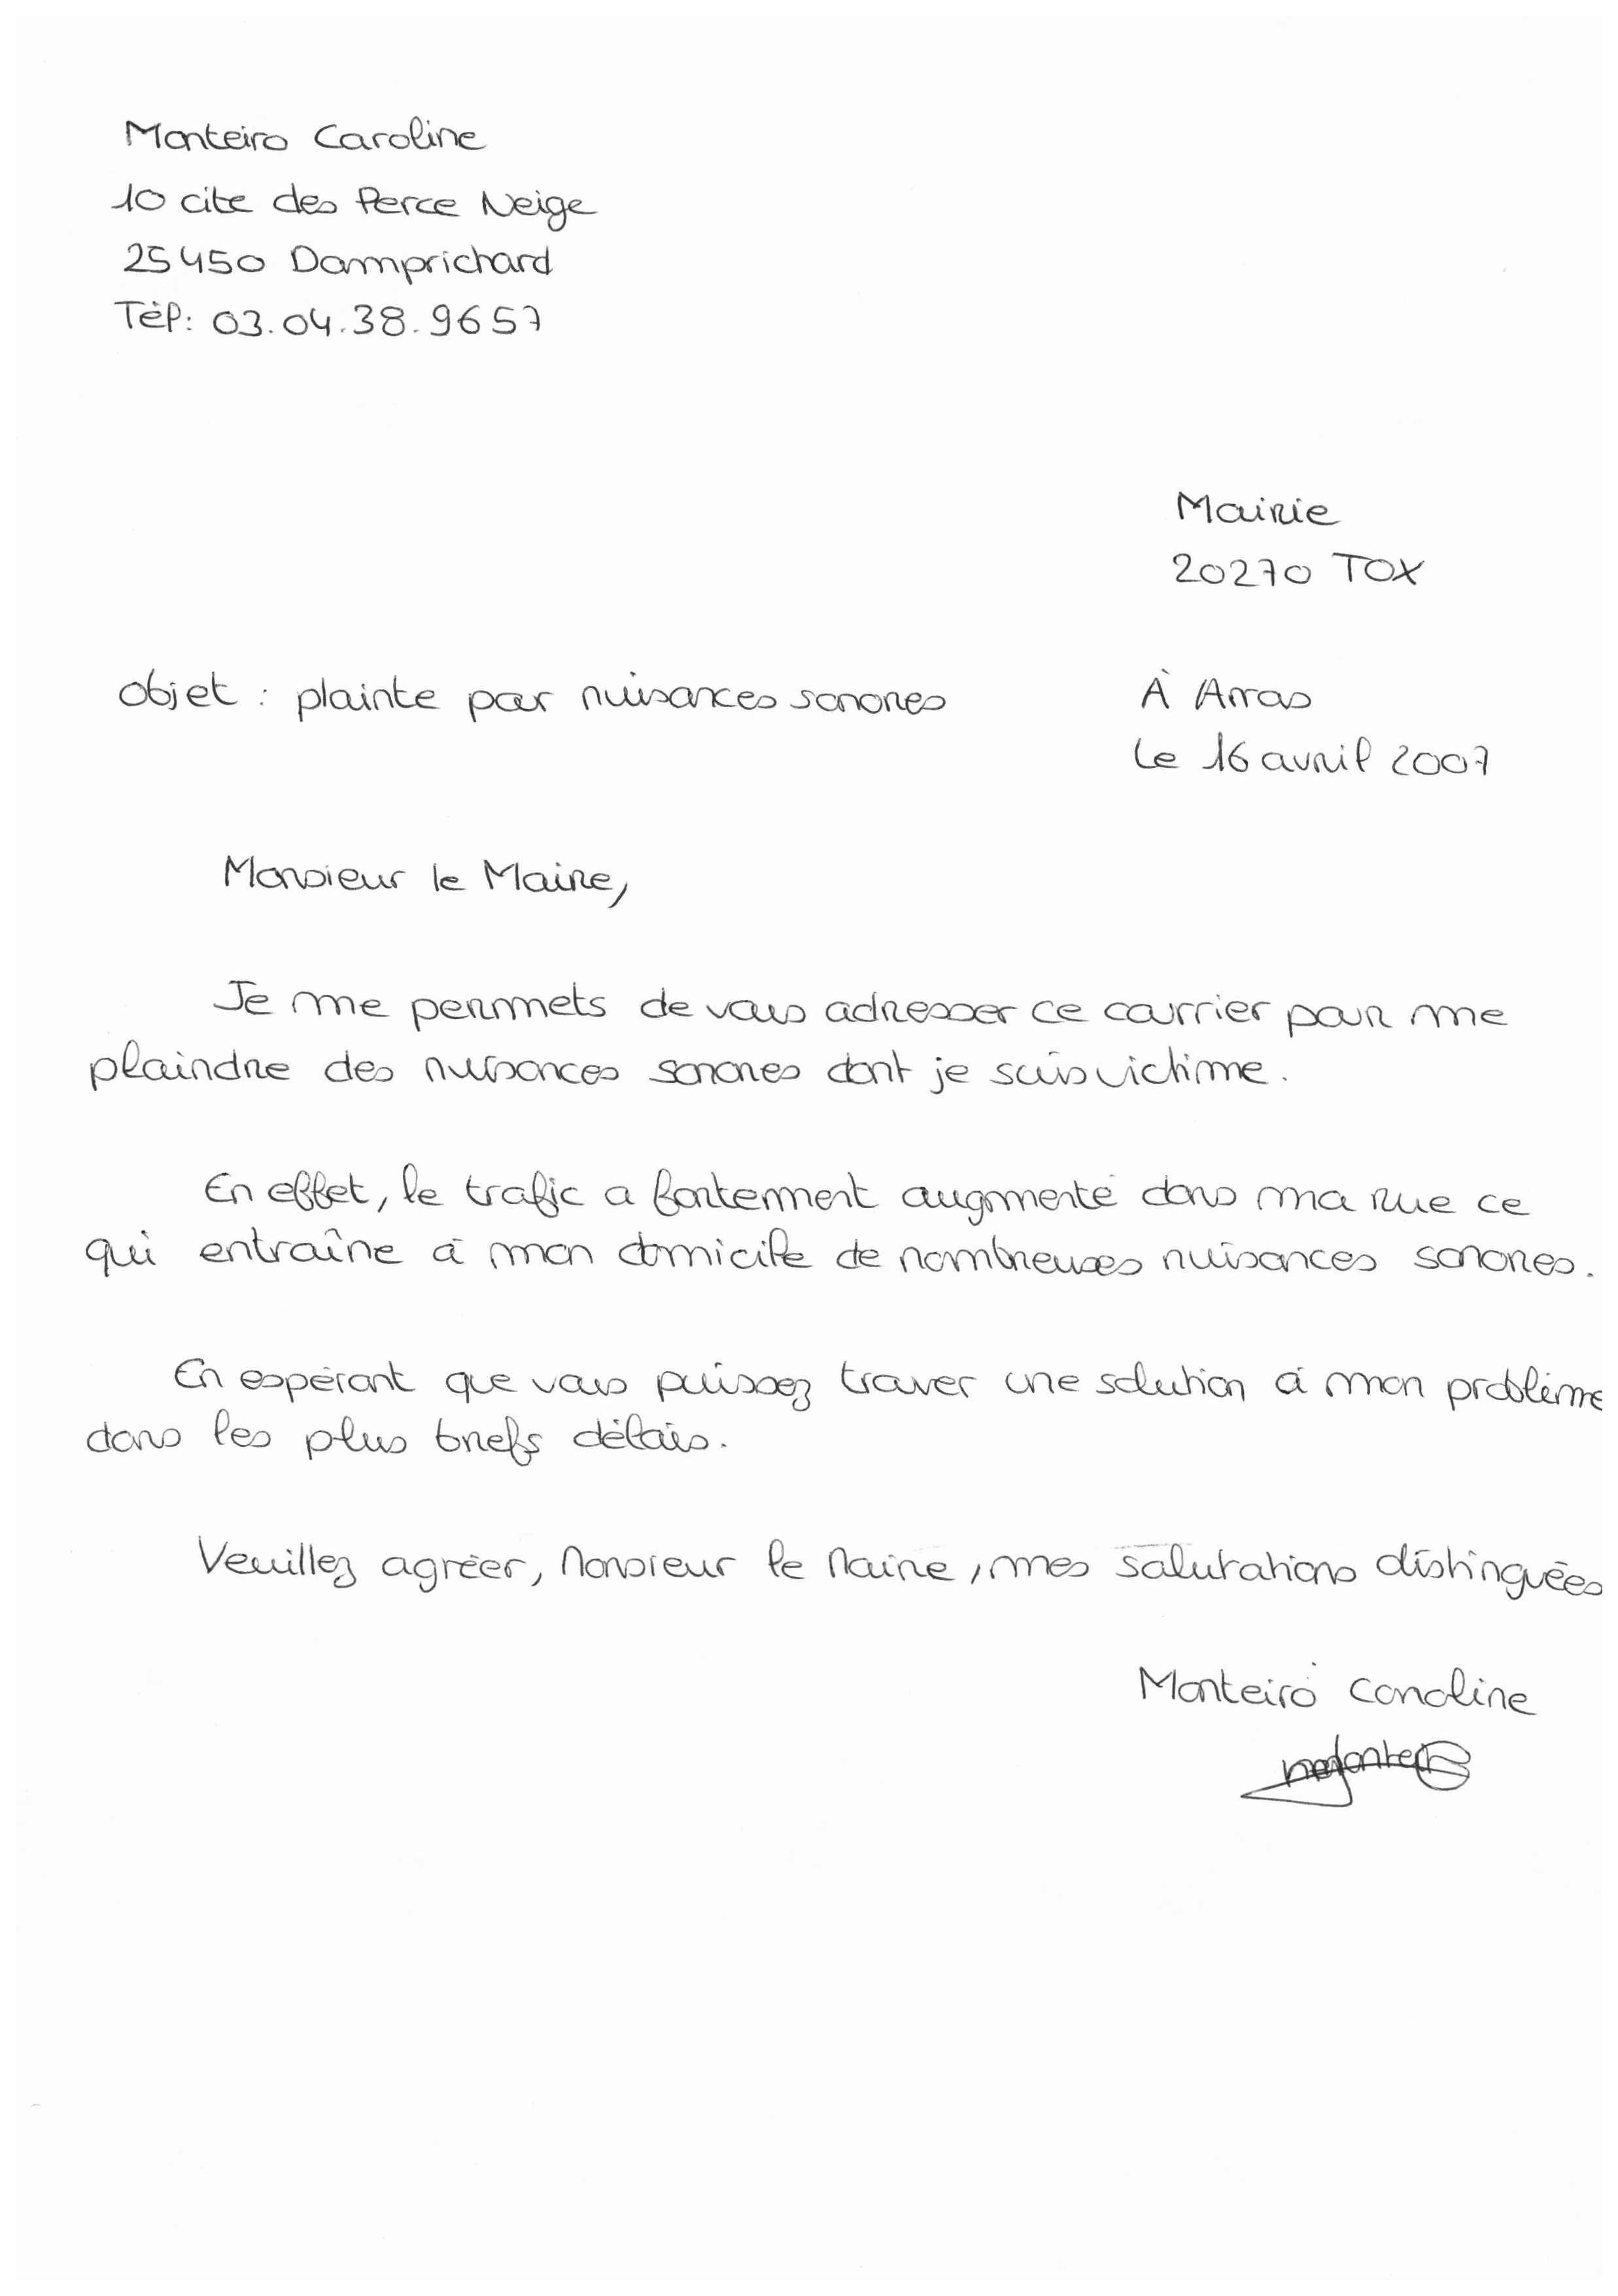 Monteiro Caroline
10 cite des Perce Neige
25450 Damprichard
Tél: 03.04.38.9657
Mairie
20270 TOX
objet : plainte par nuisances sonores
À Arras
Le 16 avril 2007
Monsieur le Maire,
Je me permets de vous adresser ce courrier pour me
plaindre des nuisances sonores dont je suis victime.
En effet, le trafic a fortement augmenté dans ma rue ce
qui entraîne à mon domicile de nombreuses nuisances sonores.
En espérant que vous puissez trouver une solution à mon problème
dans les plus brefs délais.
Veuillez agréer, Monsieur le Maire, mes salutations distinguées
Monteiro Caroline